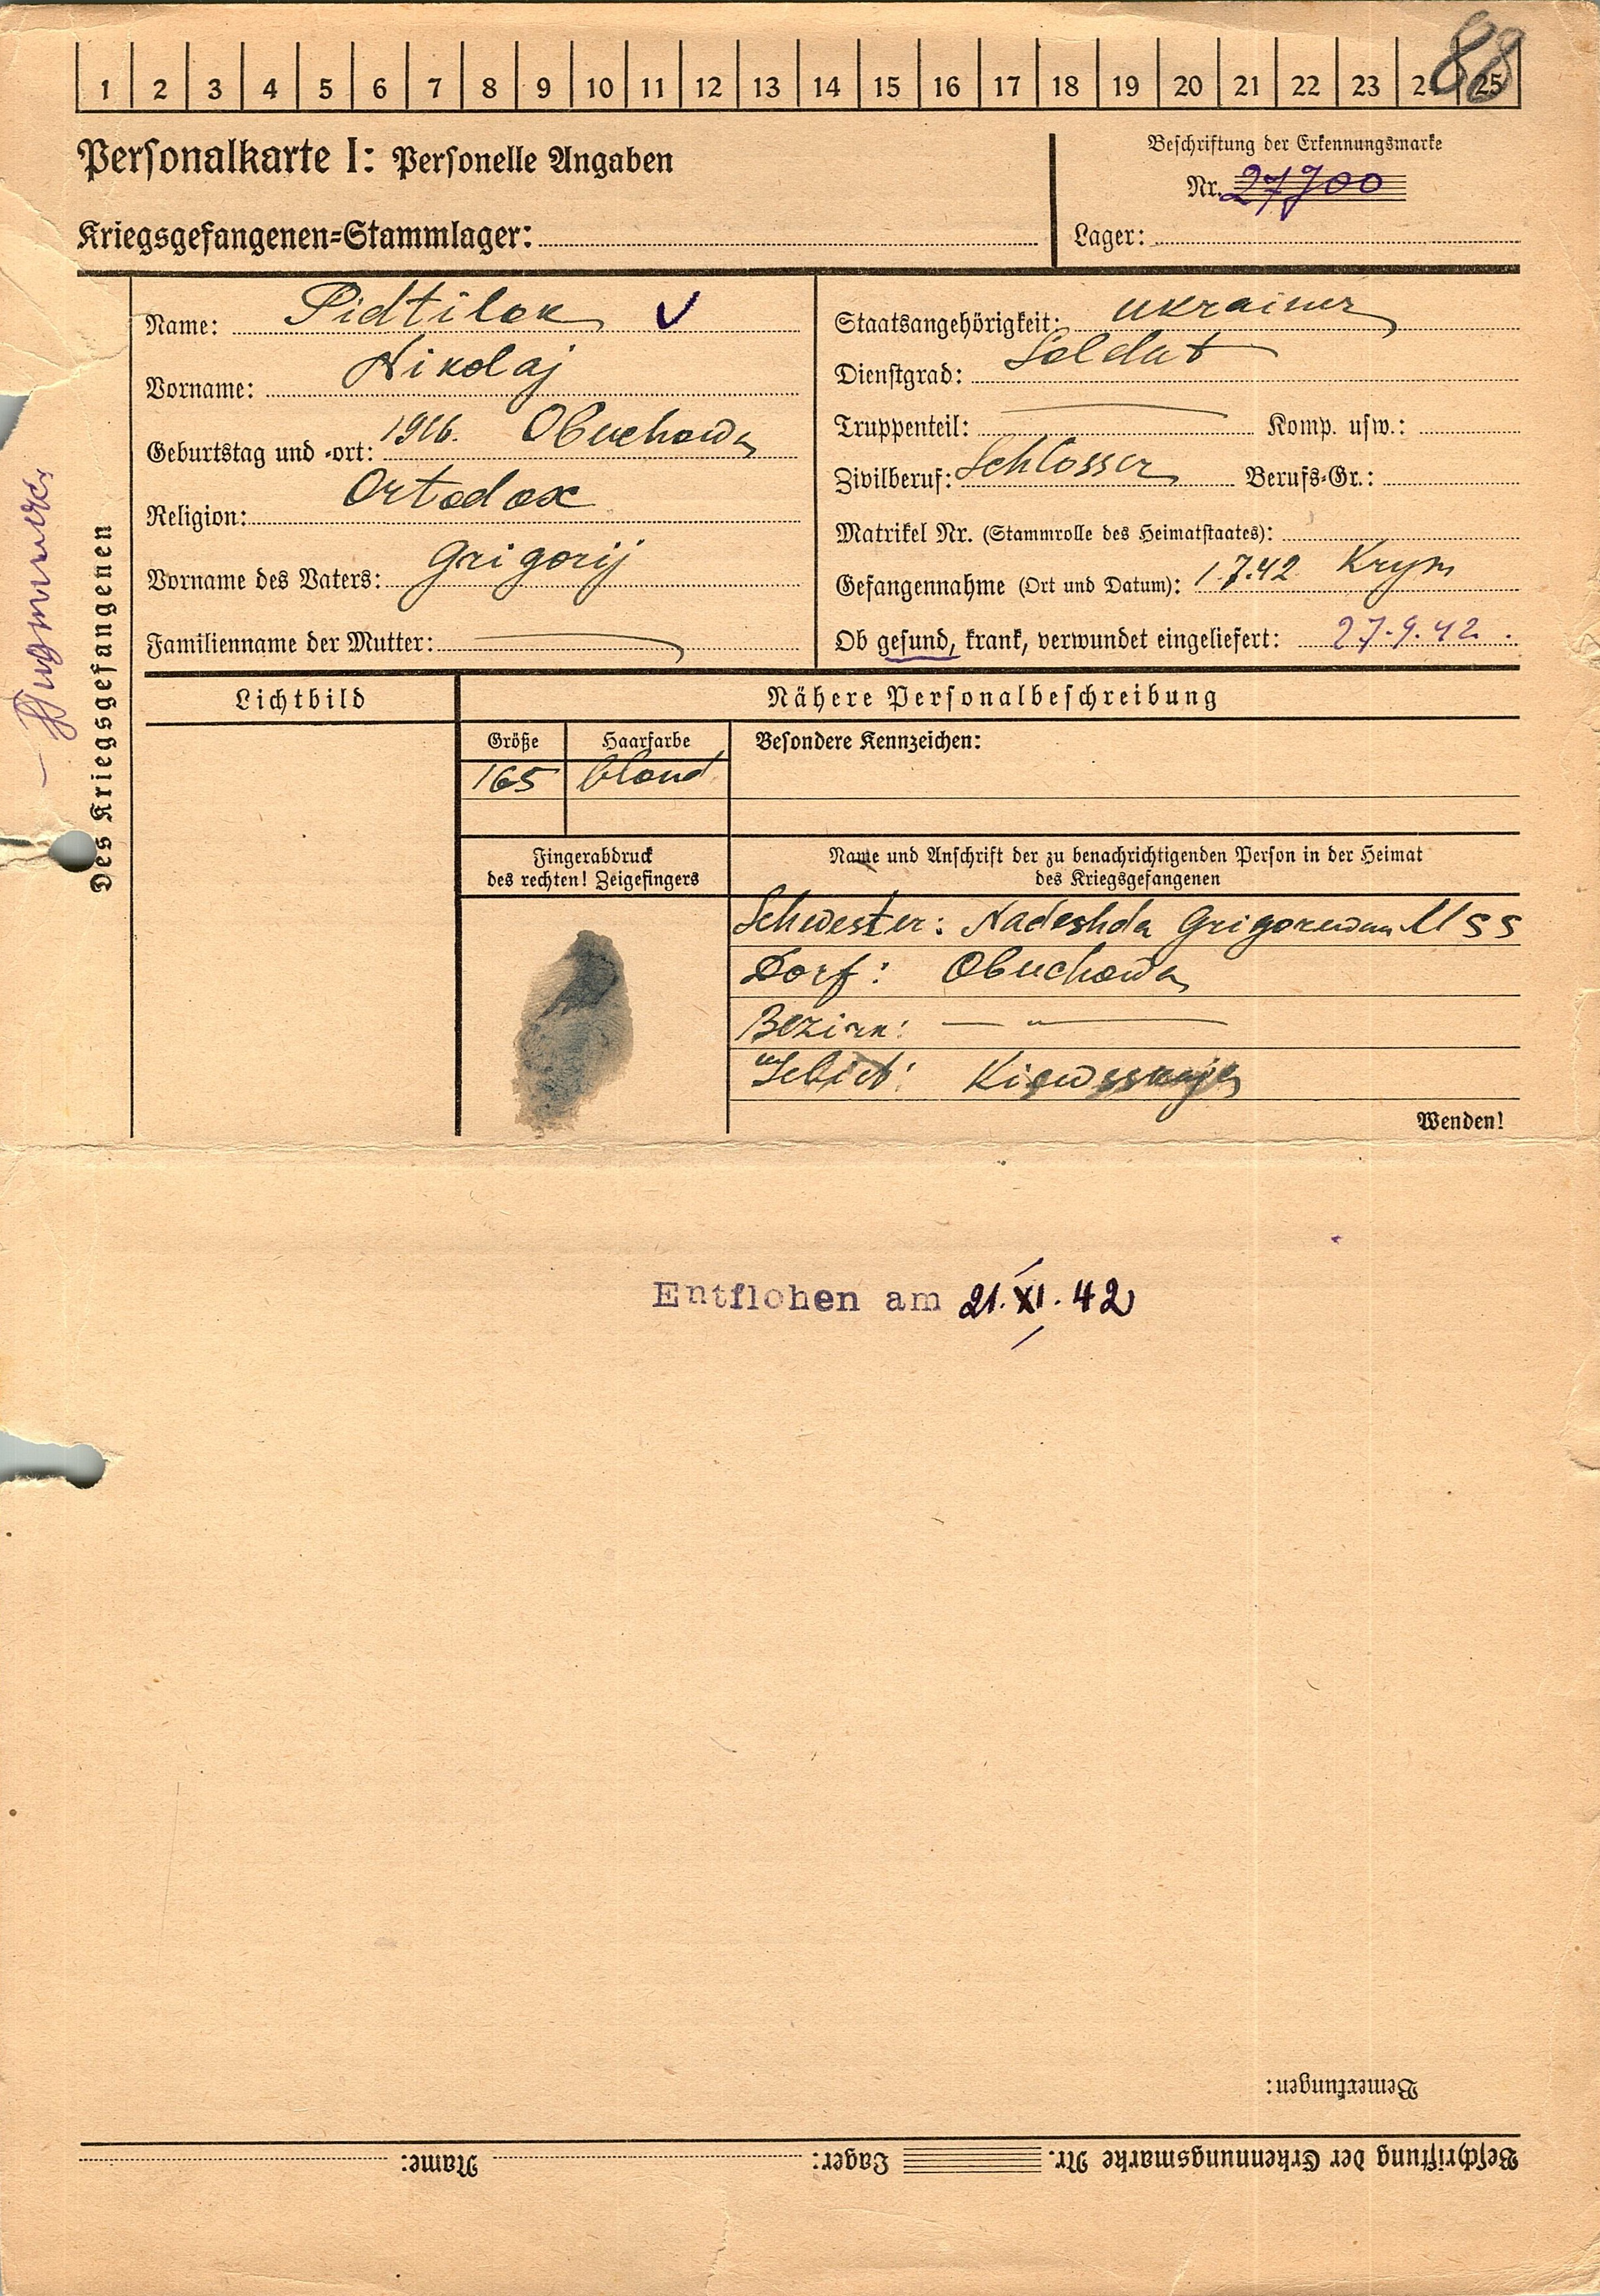 88
1 2 3 4 5 6 7 8 9 10 11 12 13 14 15 16 17 18 19 20 21 22 23 2 25
Personalkarte I: Personelle Angaben
Beschriftung der Erkennungsmarke
Nr. 27700
Kriegsgefangenen-Stammlager:
Lager:
Des Kriegsgefangenen
Name: Pidtilok
Vorname: Nikolaj
Geburtstag und -ort: 1916. Obuchowa
Religion: Ortodox
Vorname des Vaters: Grigorij
Familienname der Mutter:
Staatsangehörigkeit: Ukrainer
Dienstgrad: Soldat
Truppenteil: Komp. usw.:
Zivilberuf: Schlosser Berufs-Gr.:
Matrikel Nr. (Stammrolle des Heimatstaates):
Gefangennahme (Ort und Datum): 1.7.42 Krym
Ob gesund, krank, verwundet eingeliefert: 27.9.42.
Lichtbild
Nähere Personalbeschreibung
Größe Haarfarbe Besondere Kennzeichen:
165 blond
Fingerabdruck
des rechten! Zeigefingers
Name und Anschrift der zu benachrichtigenden Person in der Heimat
des Kriegsgefangenen
Schwester: Nadeshda
Dorf: Obuchowa
Bezirk: — " —
Gebiet: Kiewsskaja
Wenden!
Entflohen am 21.XI.42
Bemerkungen:
Beschriftung der Erkennungsmarke Nr. Lager: Name: